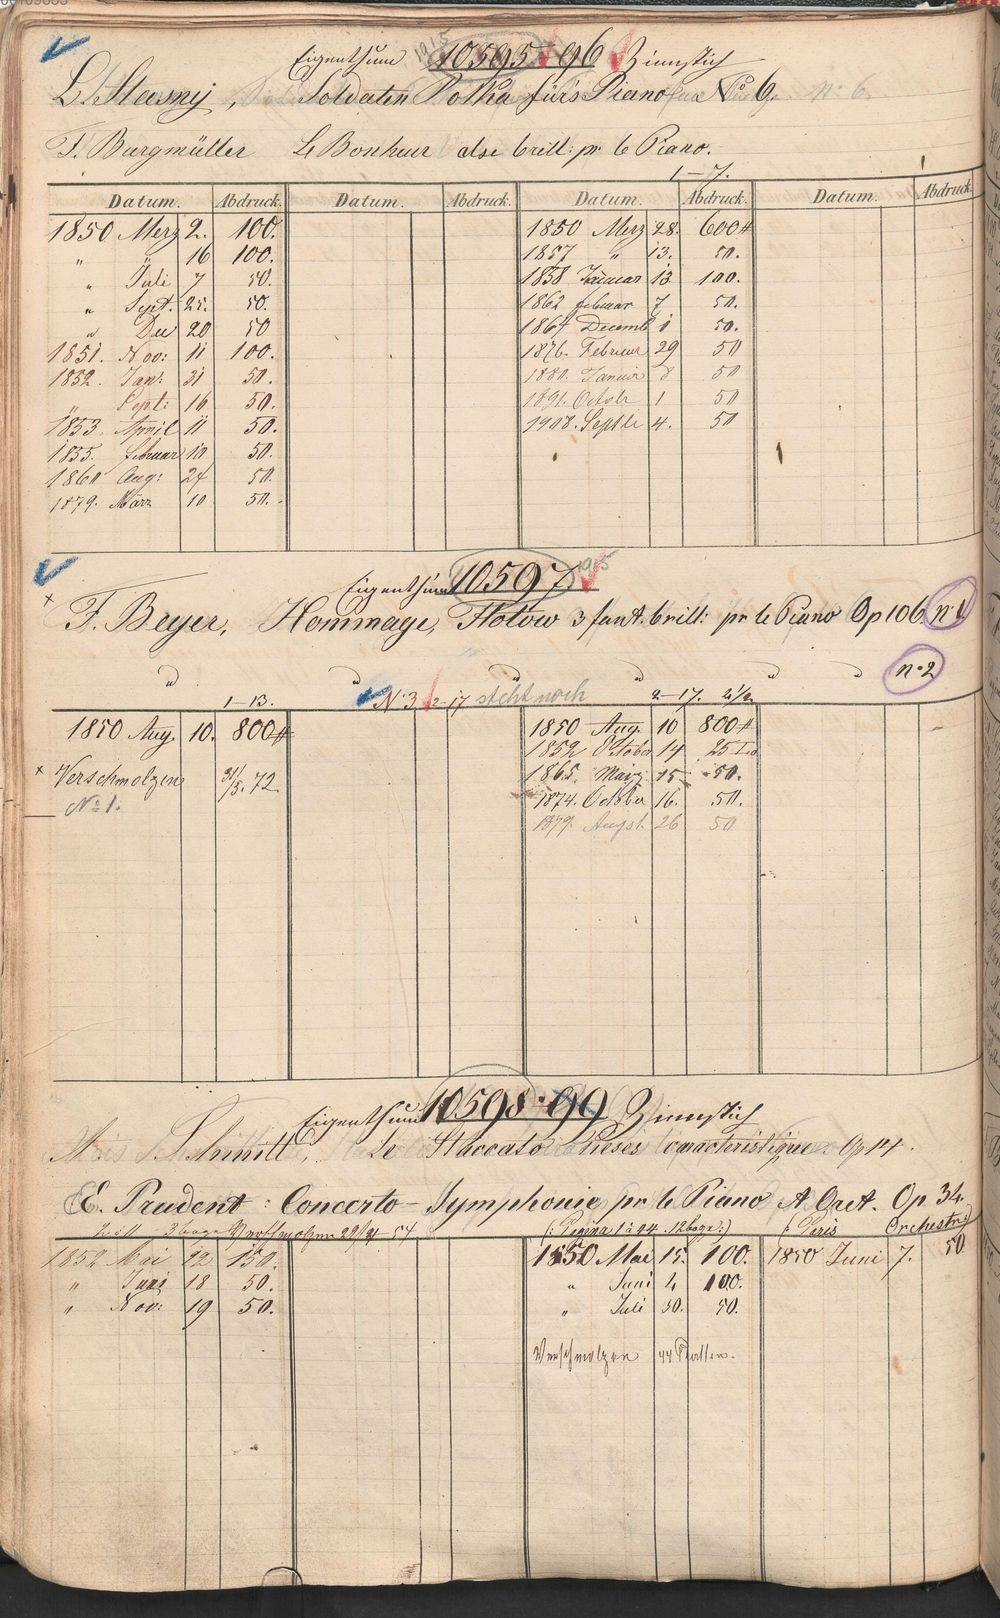 Eigenthum 1915 10595 96 Zinnstich
L. Stasny, Soldaten Polka fürs Piano No 6. No 6.
F. Burgmüller Le Bonheur alse brill: pr le Piano.
1-7.
Datum. Abdruck. Datum. Abdruck. Datum. Abdruck. Datum. Abdruck.
1850 Merz 2. 100. 1850 Merz 28. 600
" " 16 100. 1857 " 13. 50.
" Juli 7 50. 1858 Januar 13 100.
" Sept. 25. 50. 1862 februar 7 50.
" Dec 20 50 1864 Decemb 1 50.
1851. Nov: 11 100. 1876. Februar 29 50
1852. Jan: 31 50. 1880. Januar 8 50
" Sept: 16 50. 1891. Octobr 1 50
1853. April 11 50. 1908. Septbr 4. 50
1855. februar 10 50.
1860 Aug: 24 50.
1879. März 10 50.
Eigenthum 10597 1915
F. Beyer, Hommage, Flotow 3 fant. brill: pr le Piano Op 106 no 1
no 2
1-13. No 3 2-17 steht noch 2-17. 2 1/2
1850 Aug. 10. 800 1850 Aug. 10 800
1852 October 14 25
x Verschmolzen 31/5. 72 1865. März 15 50.
No 1. 1874. October 16. 50.
1879. August. 26 50
Eigenthum 10598.99 Zinnstich
Schmitt, Le Staccato Pieses caracteristique. Op 14.
E. Prudent: Concerto-Symphonie pr le Piano A Orct. Op 34.
3 bogn Verschmolzen 29/4 54 Orchestre
1852 Mai 12 150. 1850 Mai 15. 100. 1850 Juni 7. 50.
" Juni 18 50. " Juni 4 100.
" Nov: 19 50. " Juli 30. 50.
Verschmolzen 44 Platten.